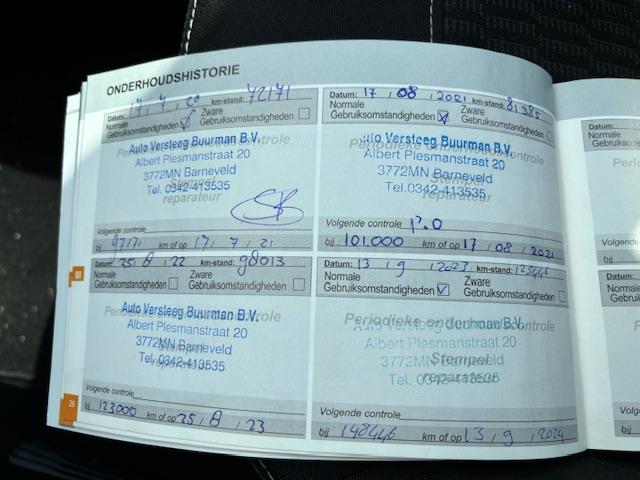 ONDERHOUDSHISTORIE
Datum: 17 / 7 / 20 km-stand: 72171
Normale Gebruiksomstandigheden Zware Gebruiksomstandigheden
Periodieke onderhoudscontrole
Auto Versteeg Buurman B.V.
Albert Plesmanstraat 20
3772MN Barneveld
Tel. 0342-413535
Stempel
reparateur
Volgende controle
bij 97171 km of op 17 / 7 / 21
Datum: 17 / 08 / 2021 km-stand: 81385
Normale Gebruiksomstandigheden Zware Gebruiksomstandigheden
Periodieke onderhoudscontrole
Auto Versteeg Buurman B.V.
Albert Plesmanstraat 20
3772MN Barneveld
Tel. 0342-413535
Stempel
reparateur
Volgende controle P.O
bij 101.000 km of op 17 / 08 / 2021
III
Datum: 25 / 8 / 22 km-stand: 98013
Normale Gebruiksomstandigheden Zware Gebruiksomstandigheden
Periodieke onderhoudscontrole
Auto Versteeg Buurman B.V.
Albert Plesmanstraat 20
3772MN Barneveld
Tel. 0342-413535
Stempel
reparateur
Volgende controle
bij 123000 km of op 25 / 8 / 23
Datum: 13 / 9 / 2023 km-stand: 123446
Normale Gebruiksomstandigheden Zware Gebruiksomstandigheden
Periodieke onderhoudscontrole
Auto Versteeg Buurman B.V.
Albert Plesmanstraat 20
3772MN Barneveld
Tel. 0342-413535
Stempel
reparateur
Volgende controle
bij 148446 km of op 13 / 9 / 2024
26
Datum:
Normale
Gebruiksomst
Volgende c
bij
Datum:
Normale
Gebruiksoms
Volgende
bij